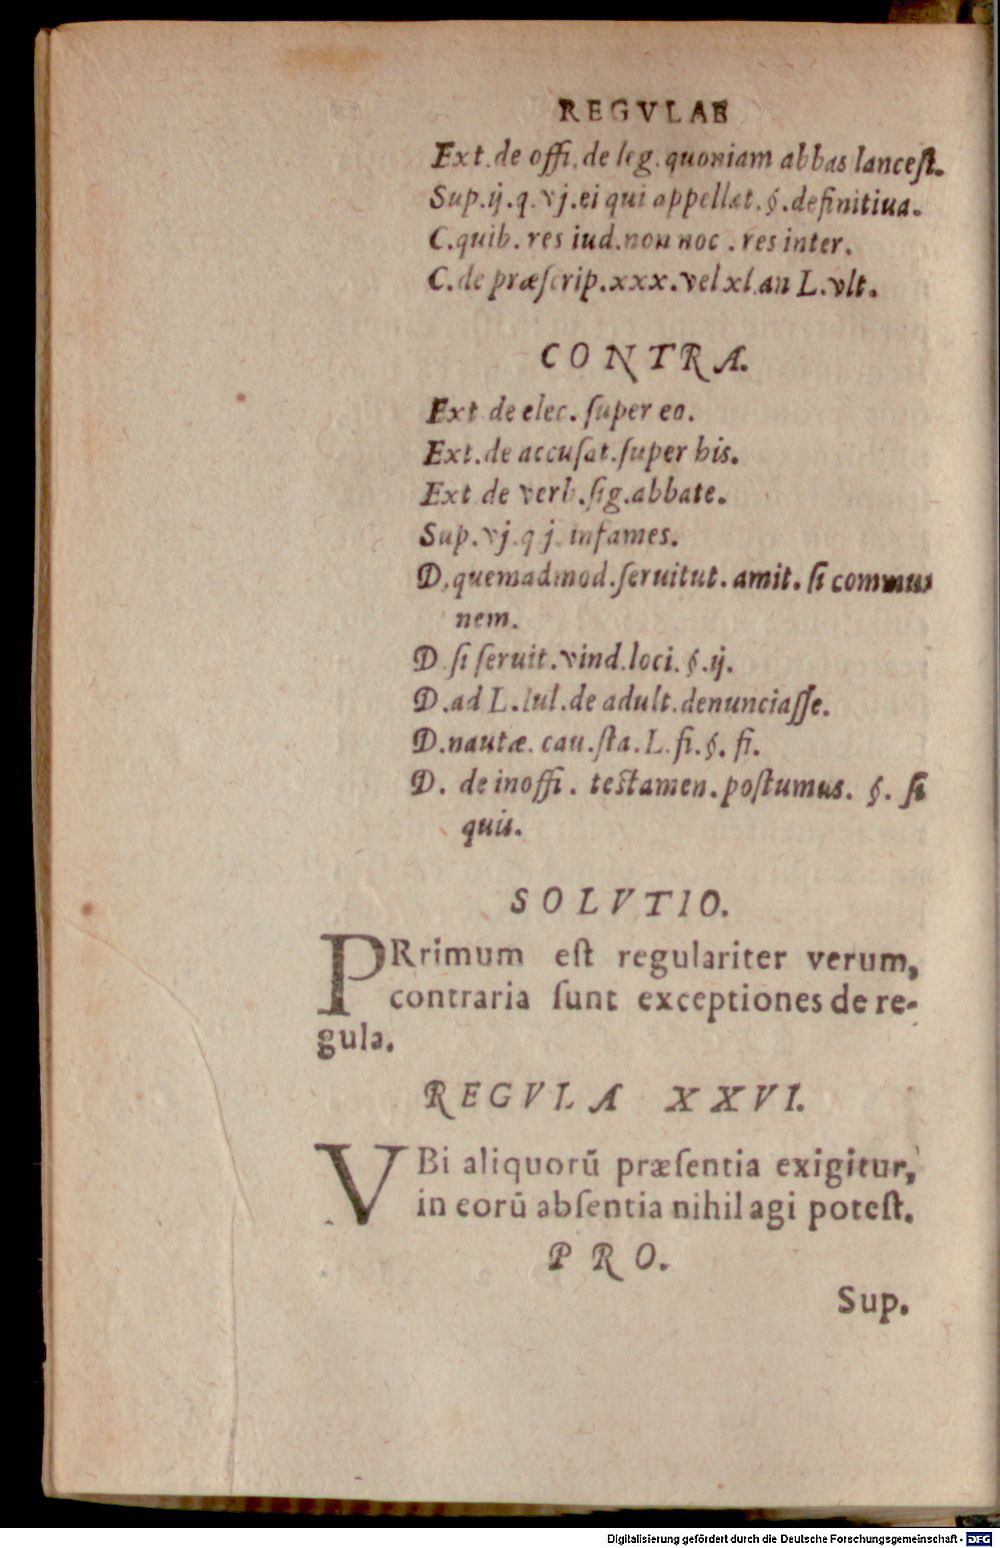 REGVLAE
Ext. de offi. de leg. quoniam abbas lancest.
Sup. ij. q. vj. ei qui appellat. §. definitiua.
C. quib. res iud. non noc. res inter.
C. de præscrip. xxx. vel xl. an L. vlt.
CONTRA.
Ext de elec. super eo.
Ext. de accusat. super his.
Ext de verb. sig. abbate.
Sup. vj. q j. infames.
D. quemadmod. seruitut. amit. si commu-
nem.
D. si seruit. vind. loci. §. ij.
D. ad L. Iul. de adult. denunciasse.
D. nautæ. cau. sta. L. fi. §. fi.
D. de inoffi. testamen. postumus. §. si
quis.
SOLVTIO.
PRrimum est regulariter verum,
contraria sunt exceptiones de re-
gula.
REGVLA XXVI.
VBi aliquorū præsentia exigitur,
in eorū absentia nihil agi potest.
PRO.
Sup.
Digitalisierung gefördert durch die Deutsche Forschungsgemeinschaft - DFG